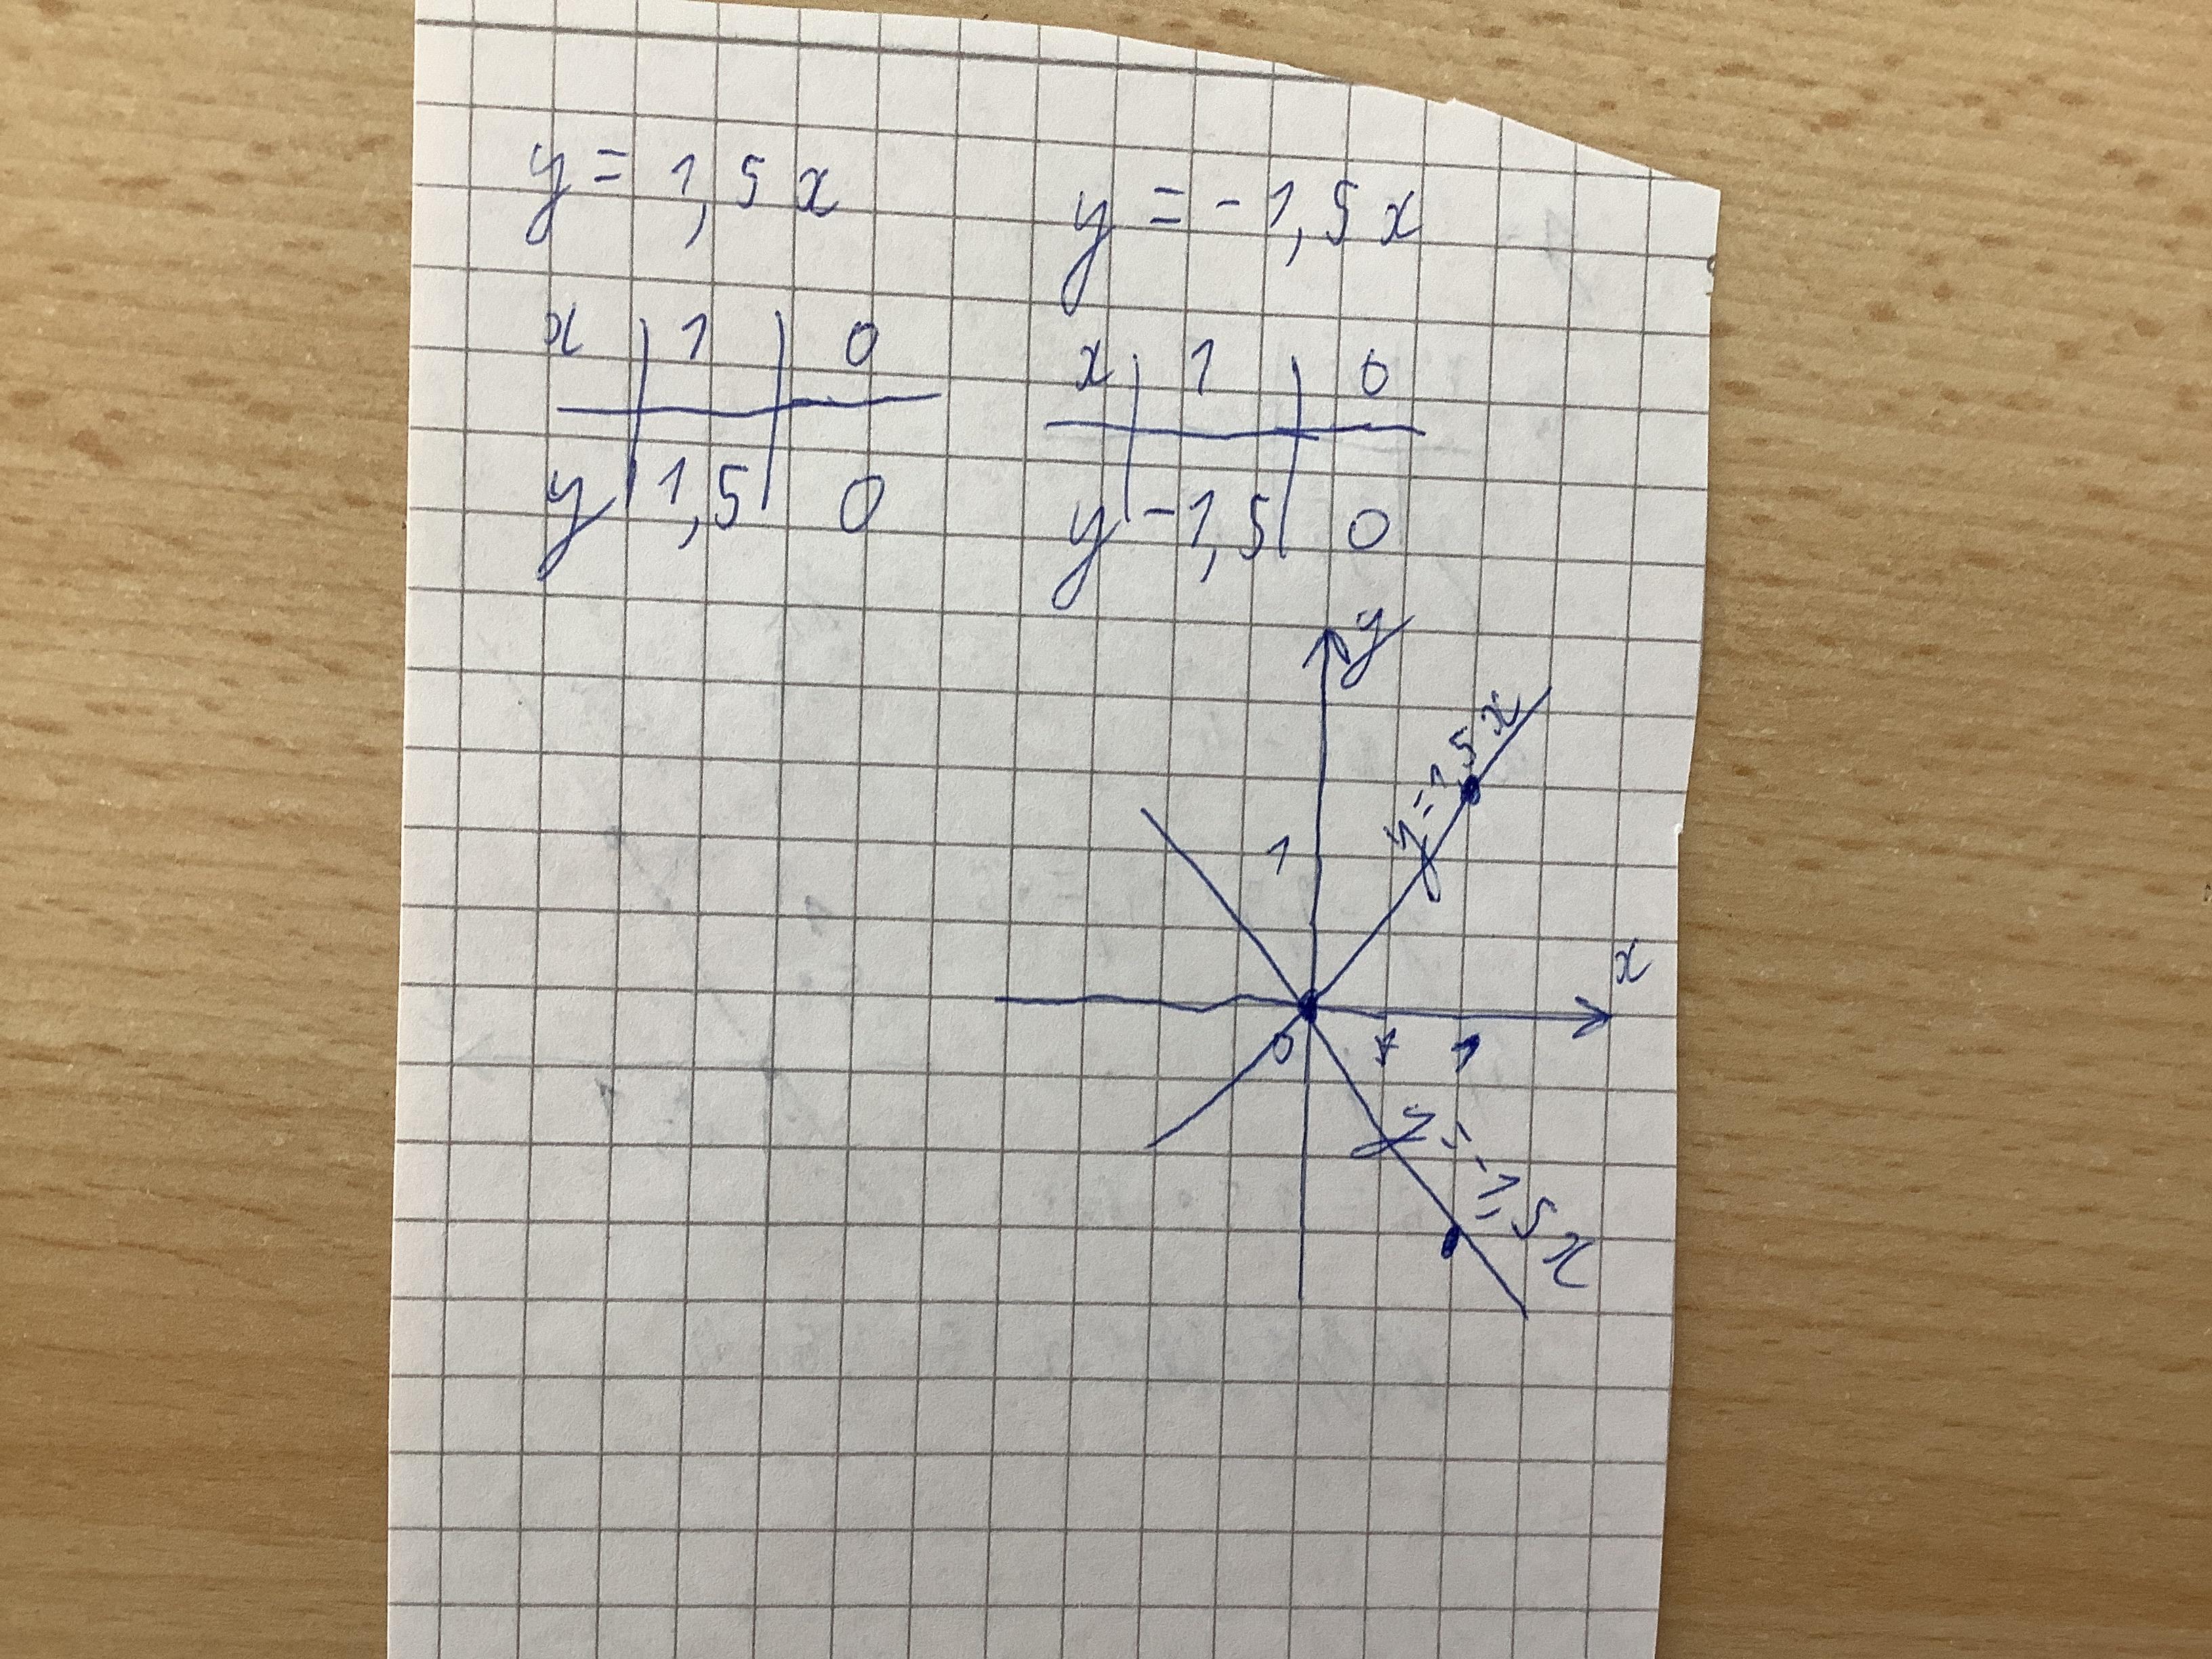 y = 1,5 x
y = -1,5 x
x 1 0
y 1,5 0
x 1 0
y -1,5 0
y
y=1,5x
1
x
0 1
y=-1,5x